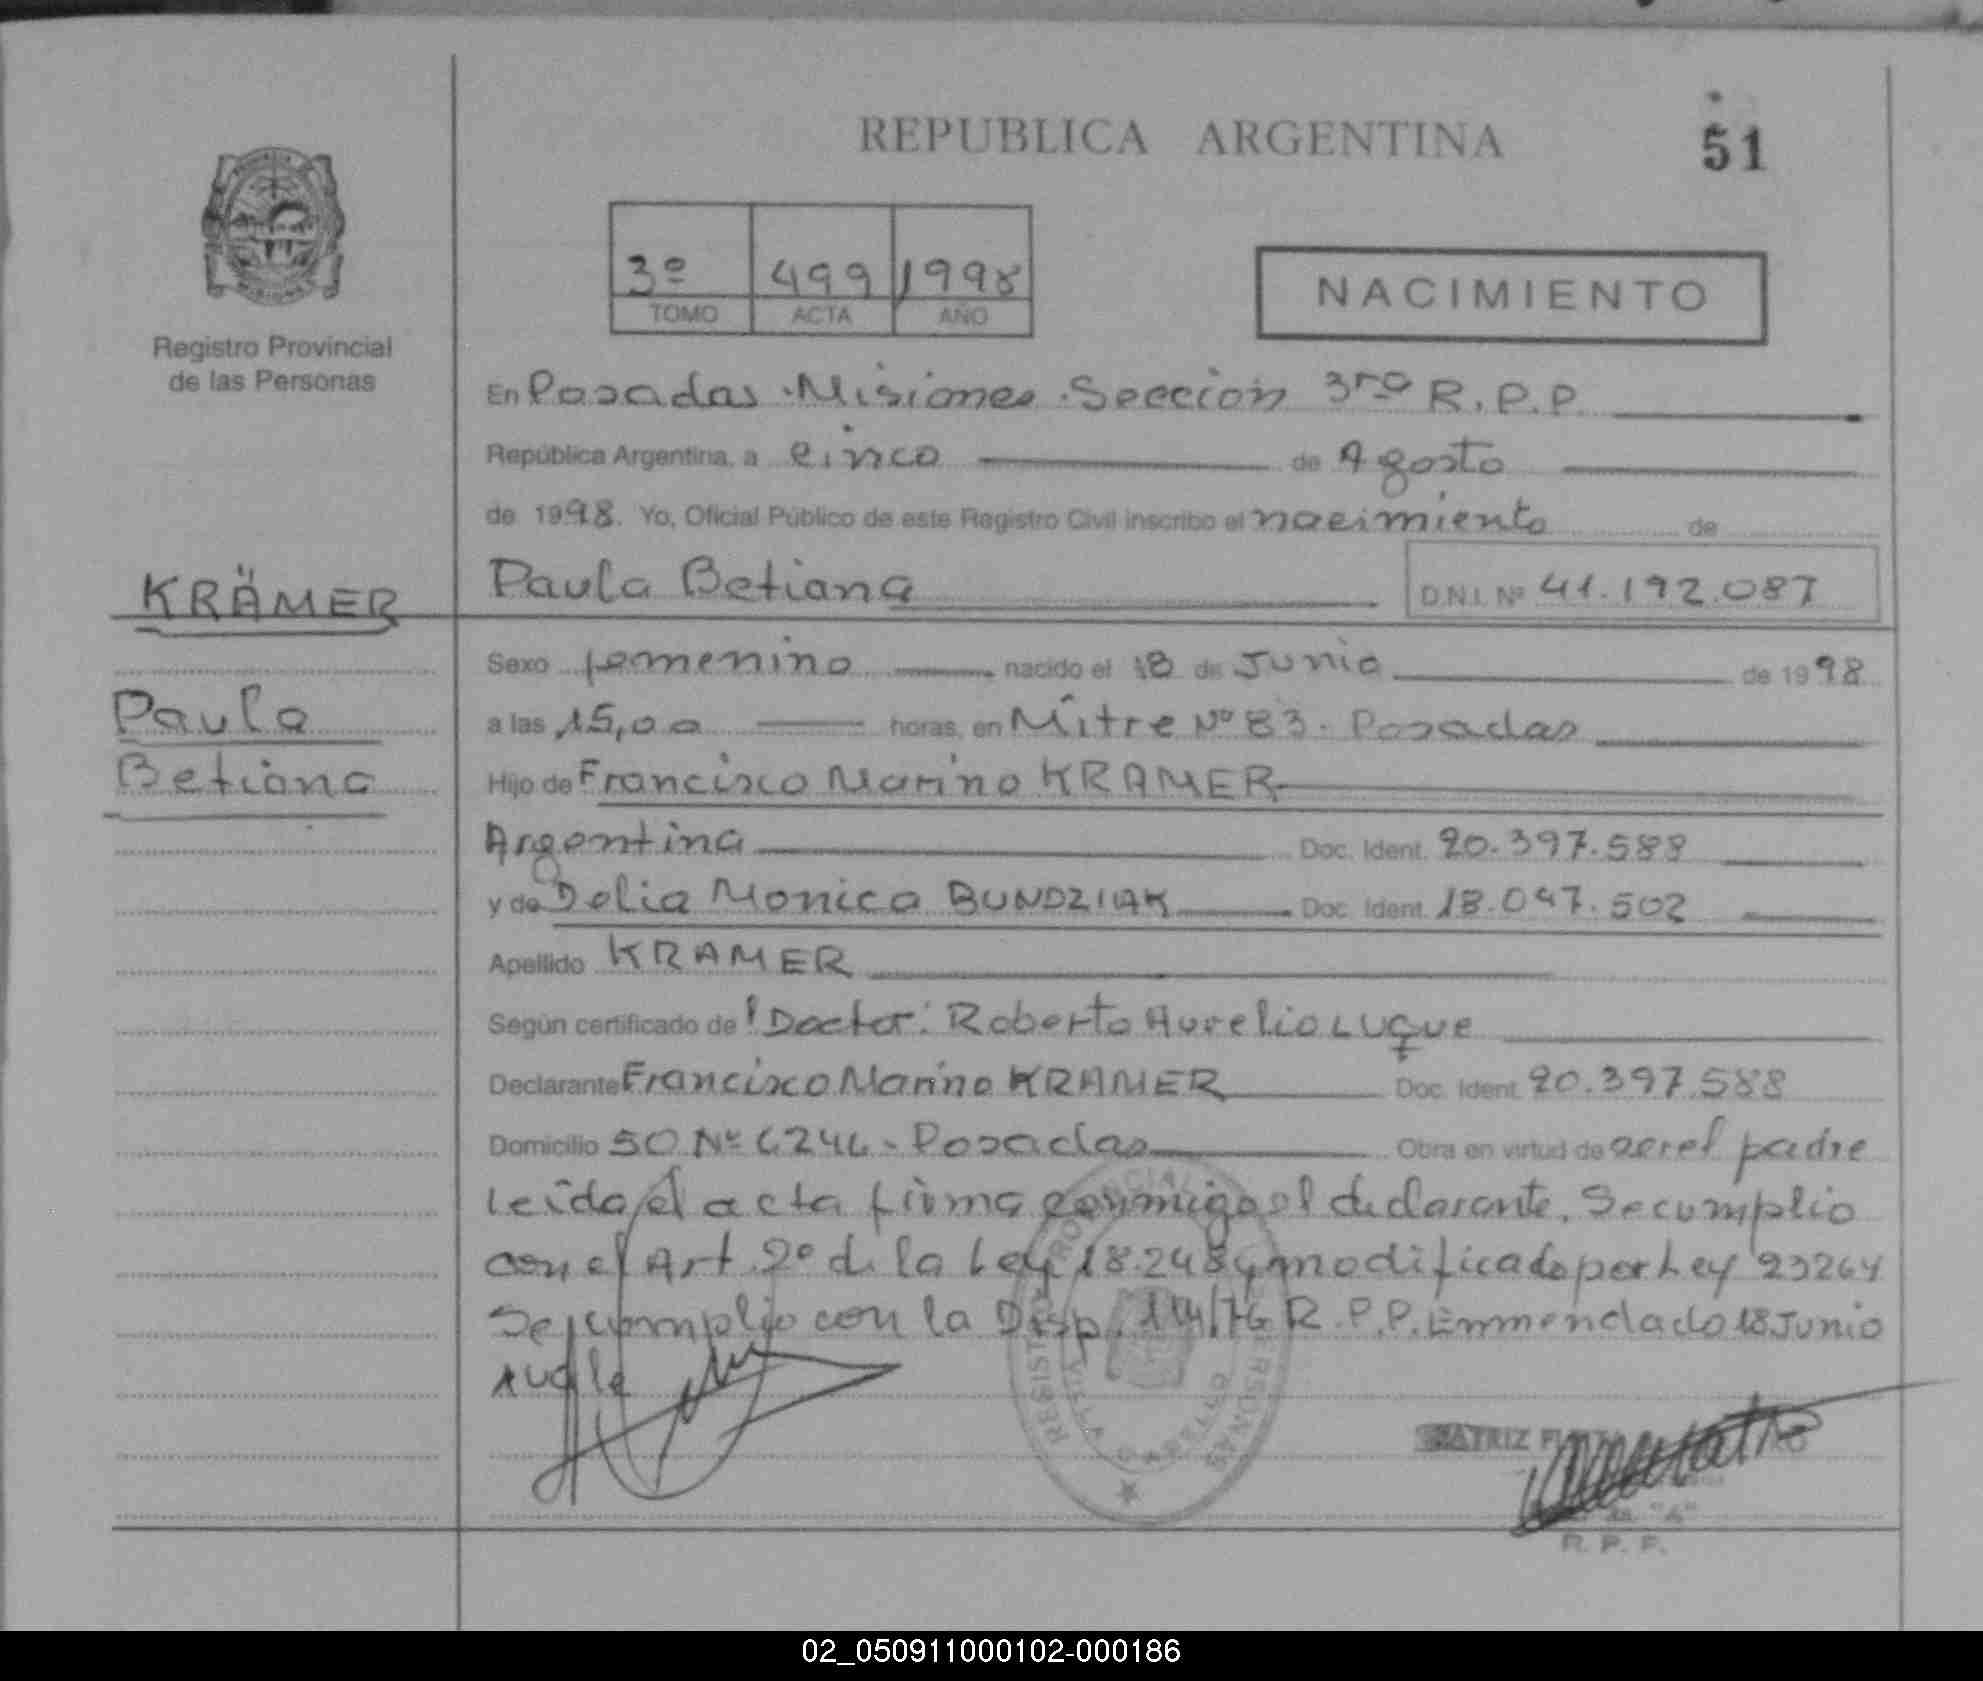 REPUBLICA ARGENTINA
51
3º 499 1998
TOMO ACTA AÑO
NACIMIENTO
MISIONES
Registro Provincial
de las Personas
En Posadas - Misiones - Sección 3ra R.P.P.
República Argentina, a cinco de Agosto
de 1998. Yo, Oficial Público de este Registro Civil inscribo el nacimiento de
KRÄMER
Paula Betiana D.N.I. Nº 41.192.087
Sexo femenino nacido el 18 de Junio de 1998
Paula
a las 15,00 horas, en Mitre Nº 83 - Posadas
Betiana
Hijo de Francisco Marino KRAMER
Argentina Doc. Ident. 20.397.588
y de Delia Monica BUNDZIAK Doc. Ident. 18.047.502
Apellido KRAMER
Según certificado de Doctor: Roberto Aurelio LUQUE
Declarante Francisco Marino KRAMER Doc. Ident. 20.397.588
Domicilio 50 Nº 6244 - Posadas Obra en virtud de ser el padre
Leida el acta firma conmigo el declarante. Se cumplio
con el Art. 2º de la Ley 18.248 y modificado por Ley 23264
Se cumplio con la Disp. 114/76 R.P.P. Enmendado 18 Junio
vale
REGISTRO PROVINCIAL PERSONAS
POSADAS
R. P. P.
02_050911000102-000186